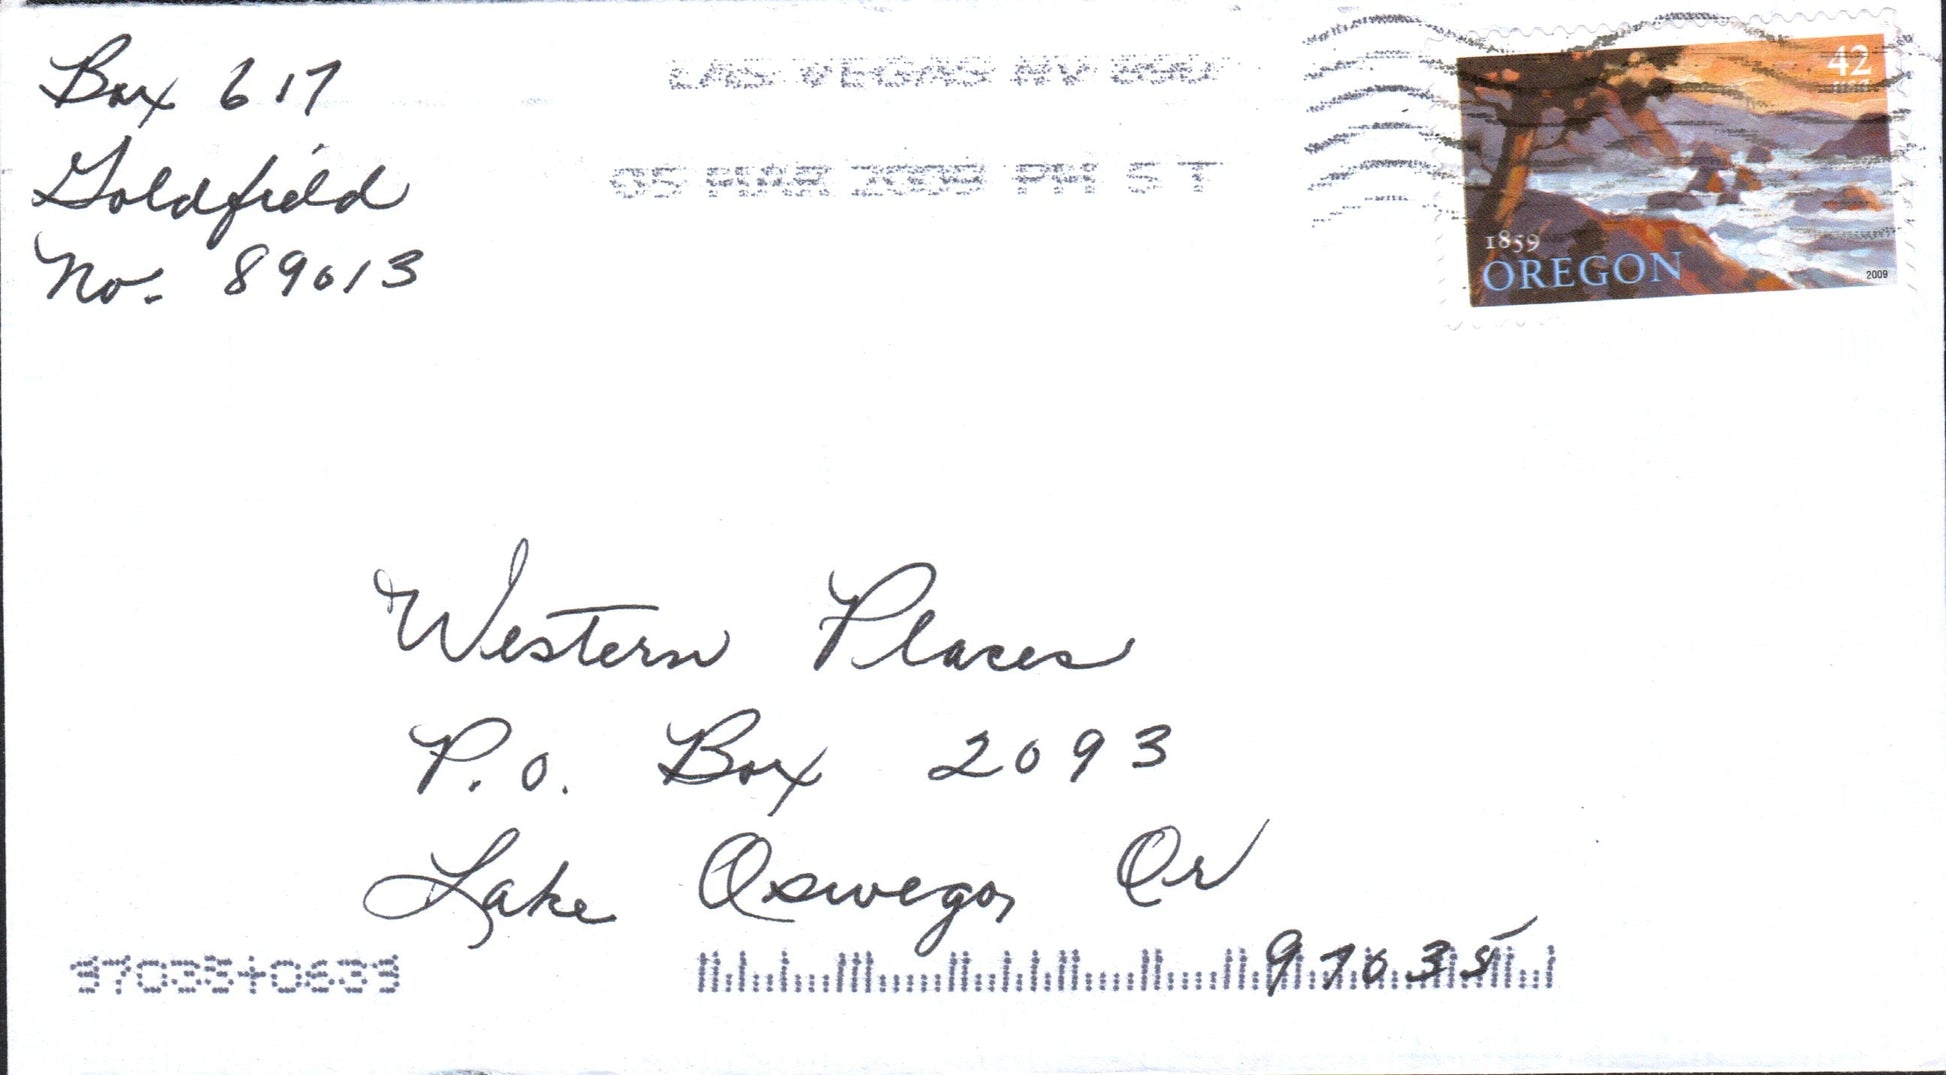 Box 617
Goldfield
Nv. 89013
LAS VEGAS NV 890
05 MAR 2009 PM 5 T
42
USA
1859
OREGON
2009
Western Places
P.O. Box 2093
Lake Oswego, Or
97035
97035+0631